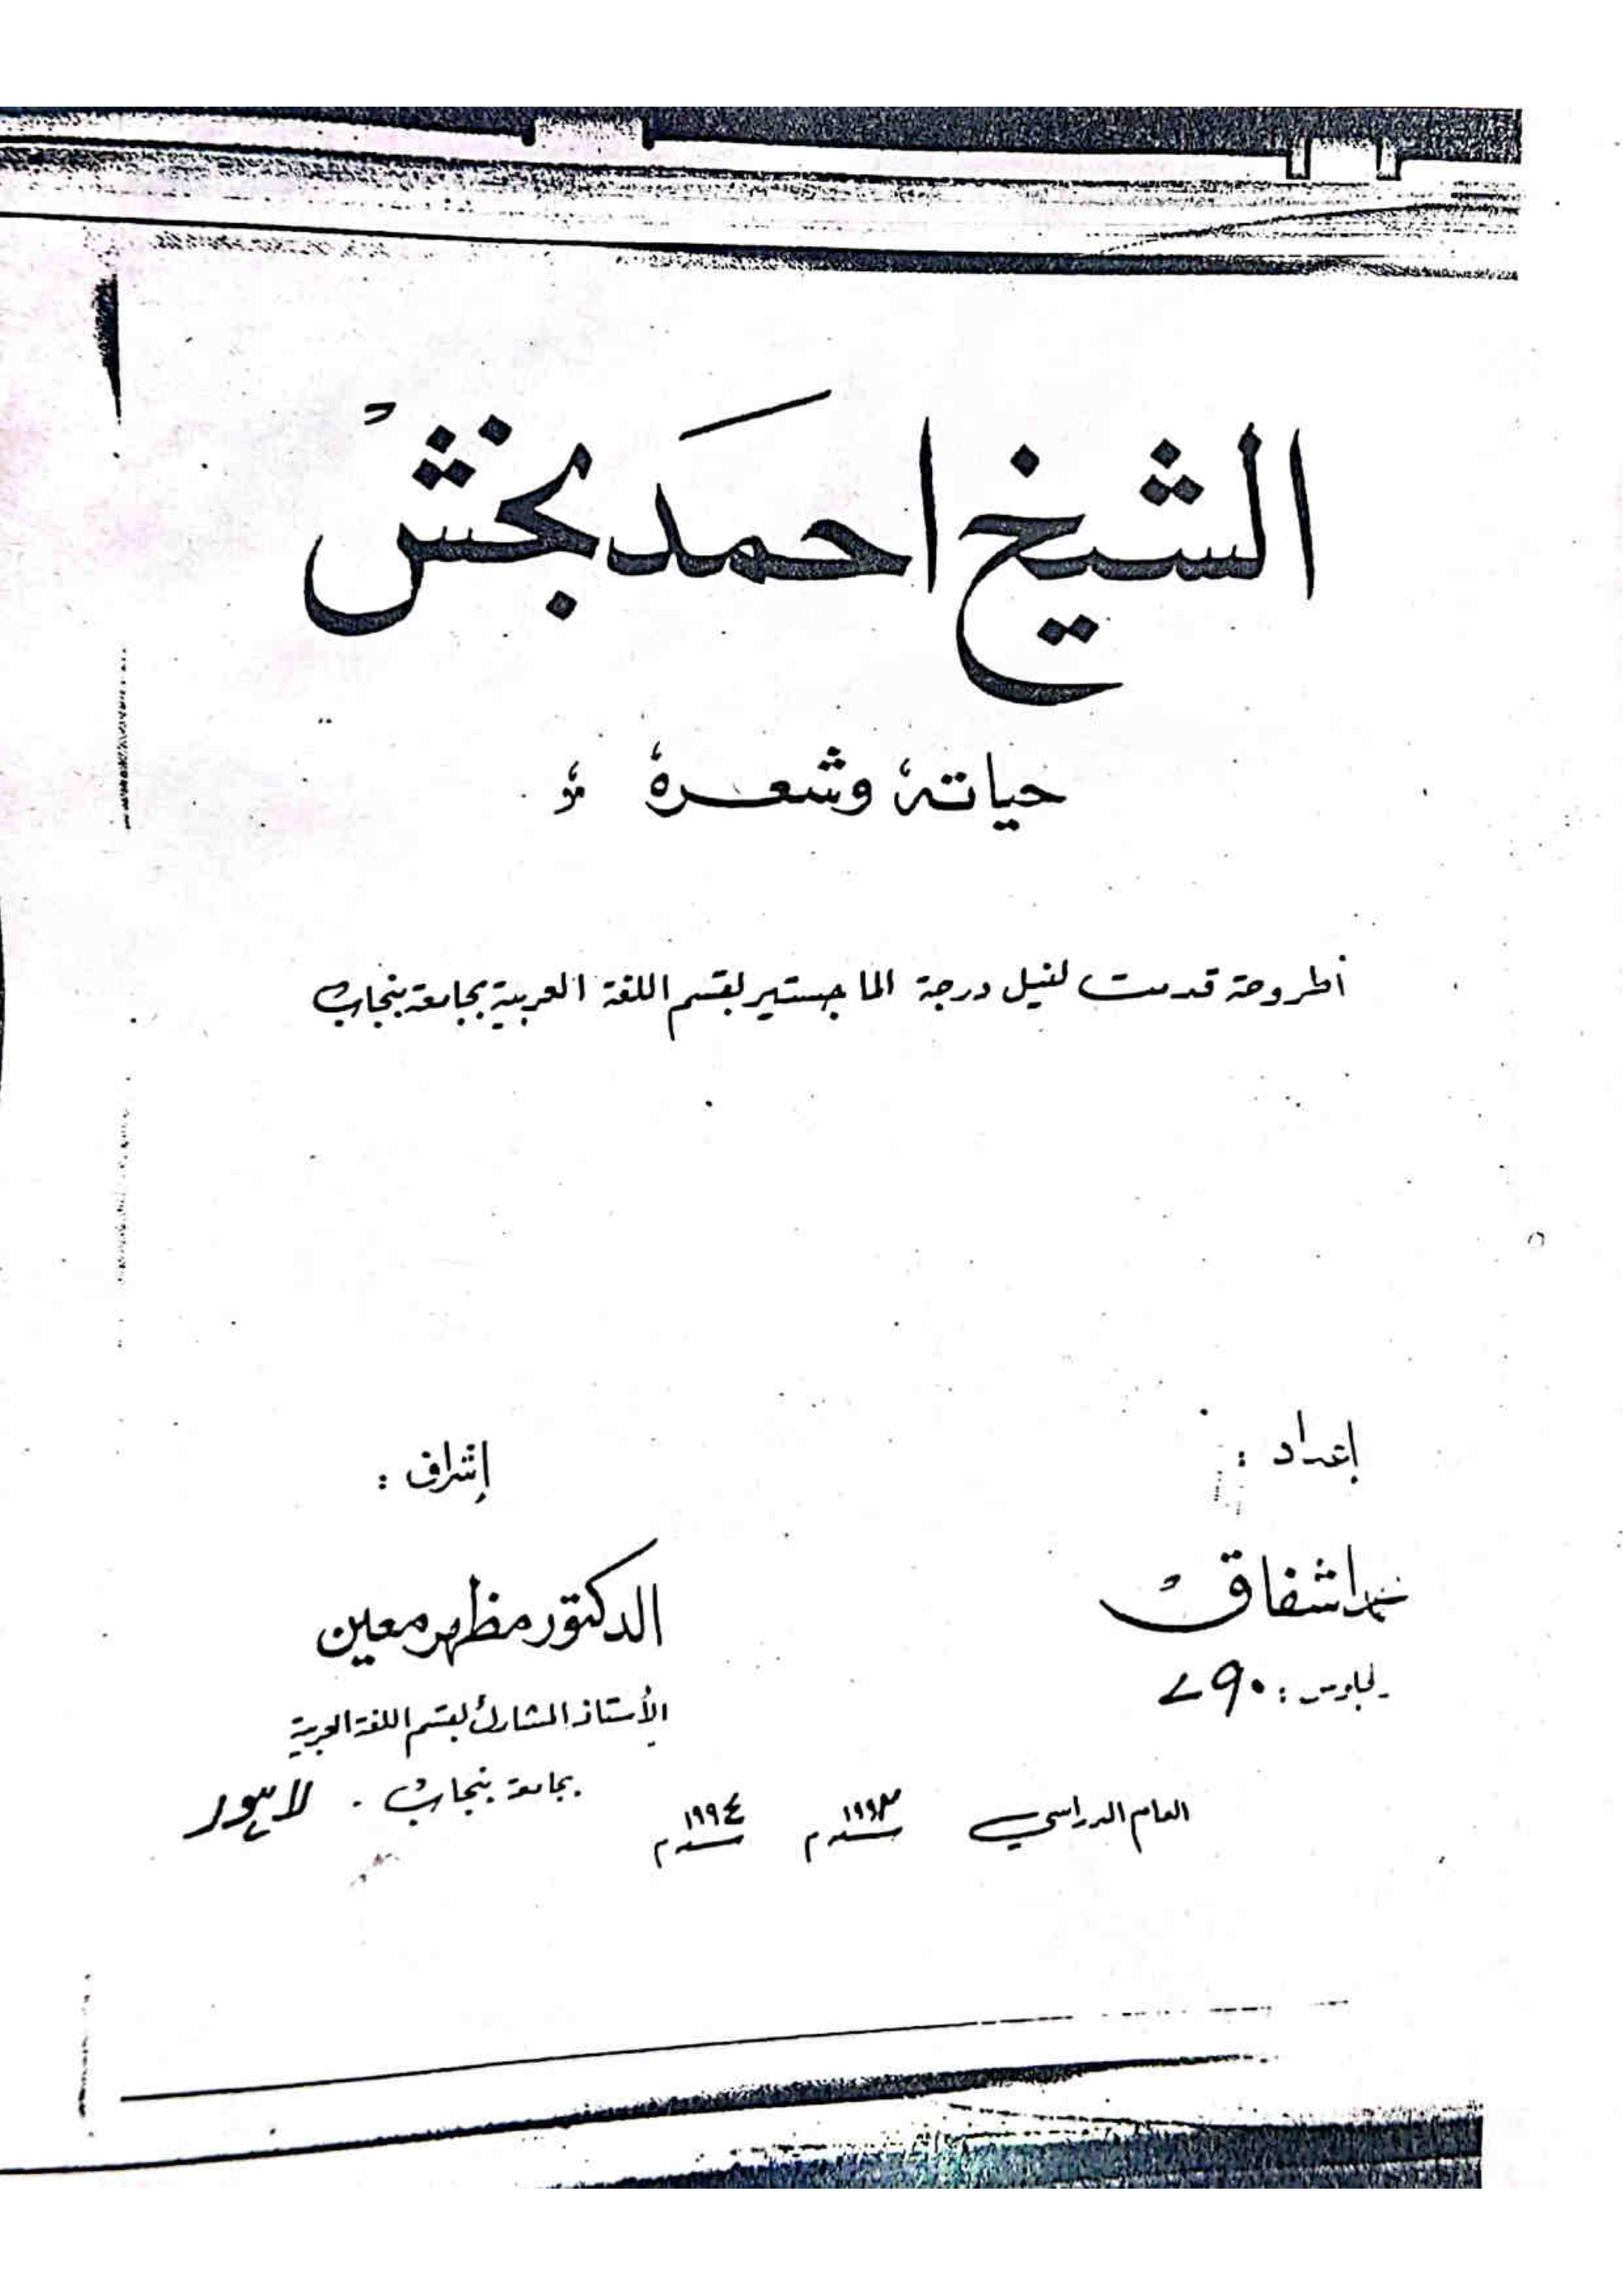 الشيخ احمد بخش
حياته وشعره
أطروحة قدمت لنيل درجة الماجستير لقسم اللغة العربية بجامعة بنجاب
إعداد :
إشراف :
محمد اشفاق
الدكتور مظهر معين
الأستاذ المشارك لقسم اللغة العربية
بجامعة بنجاب . لاہور
العام الدراسي ۱۹۹۳م ۱۹۹٤م